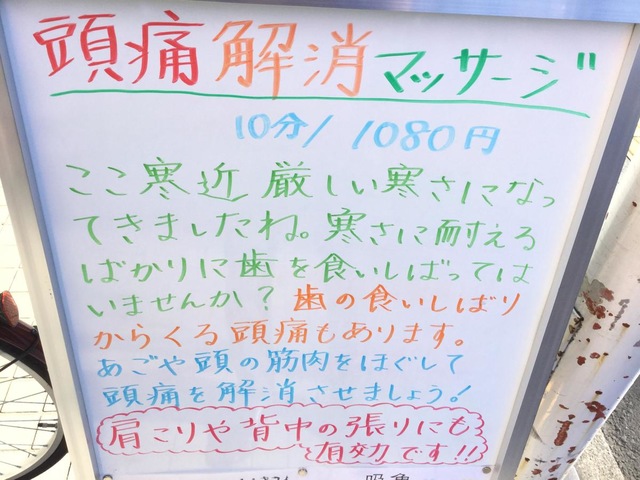 頭痛解消マッサージ
10分/1080円
ここ寒近厳しい寒さになっ
てきましたね。寒さに耐える
ばかりに歯を食いしばっては
いませんか?歯の食いしばり
からくる頭痛もあります。
あごや頭の筋肉をほぐして
頭痛を解消させましょう!
肩こりや背中の張りにも
有効です!!